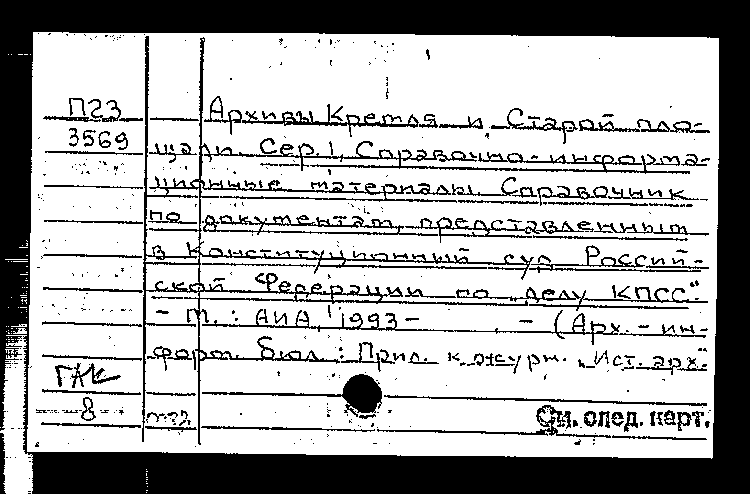 П23
3569
Архивы Кремля и Старой пло-
щади. Сер. 1, Справочно-информа-
ционные материалы. Справочник
по документам, представленным
в Конституционный суд Россий-
ской Федерации по „делу КПСС“.
- М.: АИА, 1993- - (Арх.-ин-
форм. бюл.: Прил. к журн. „Ист. арх.“
ГАК
8
См. след. карт.